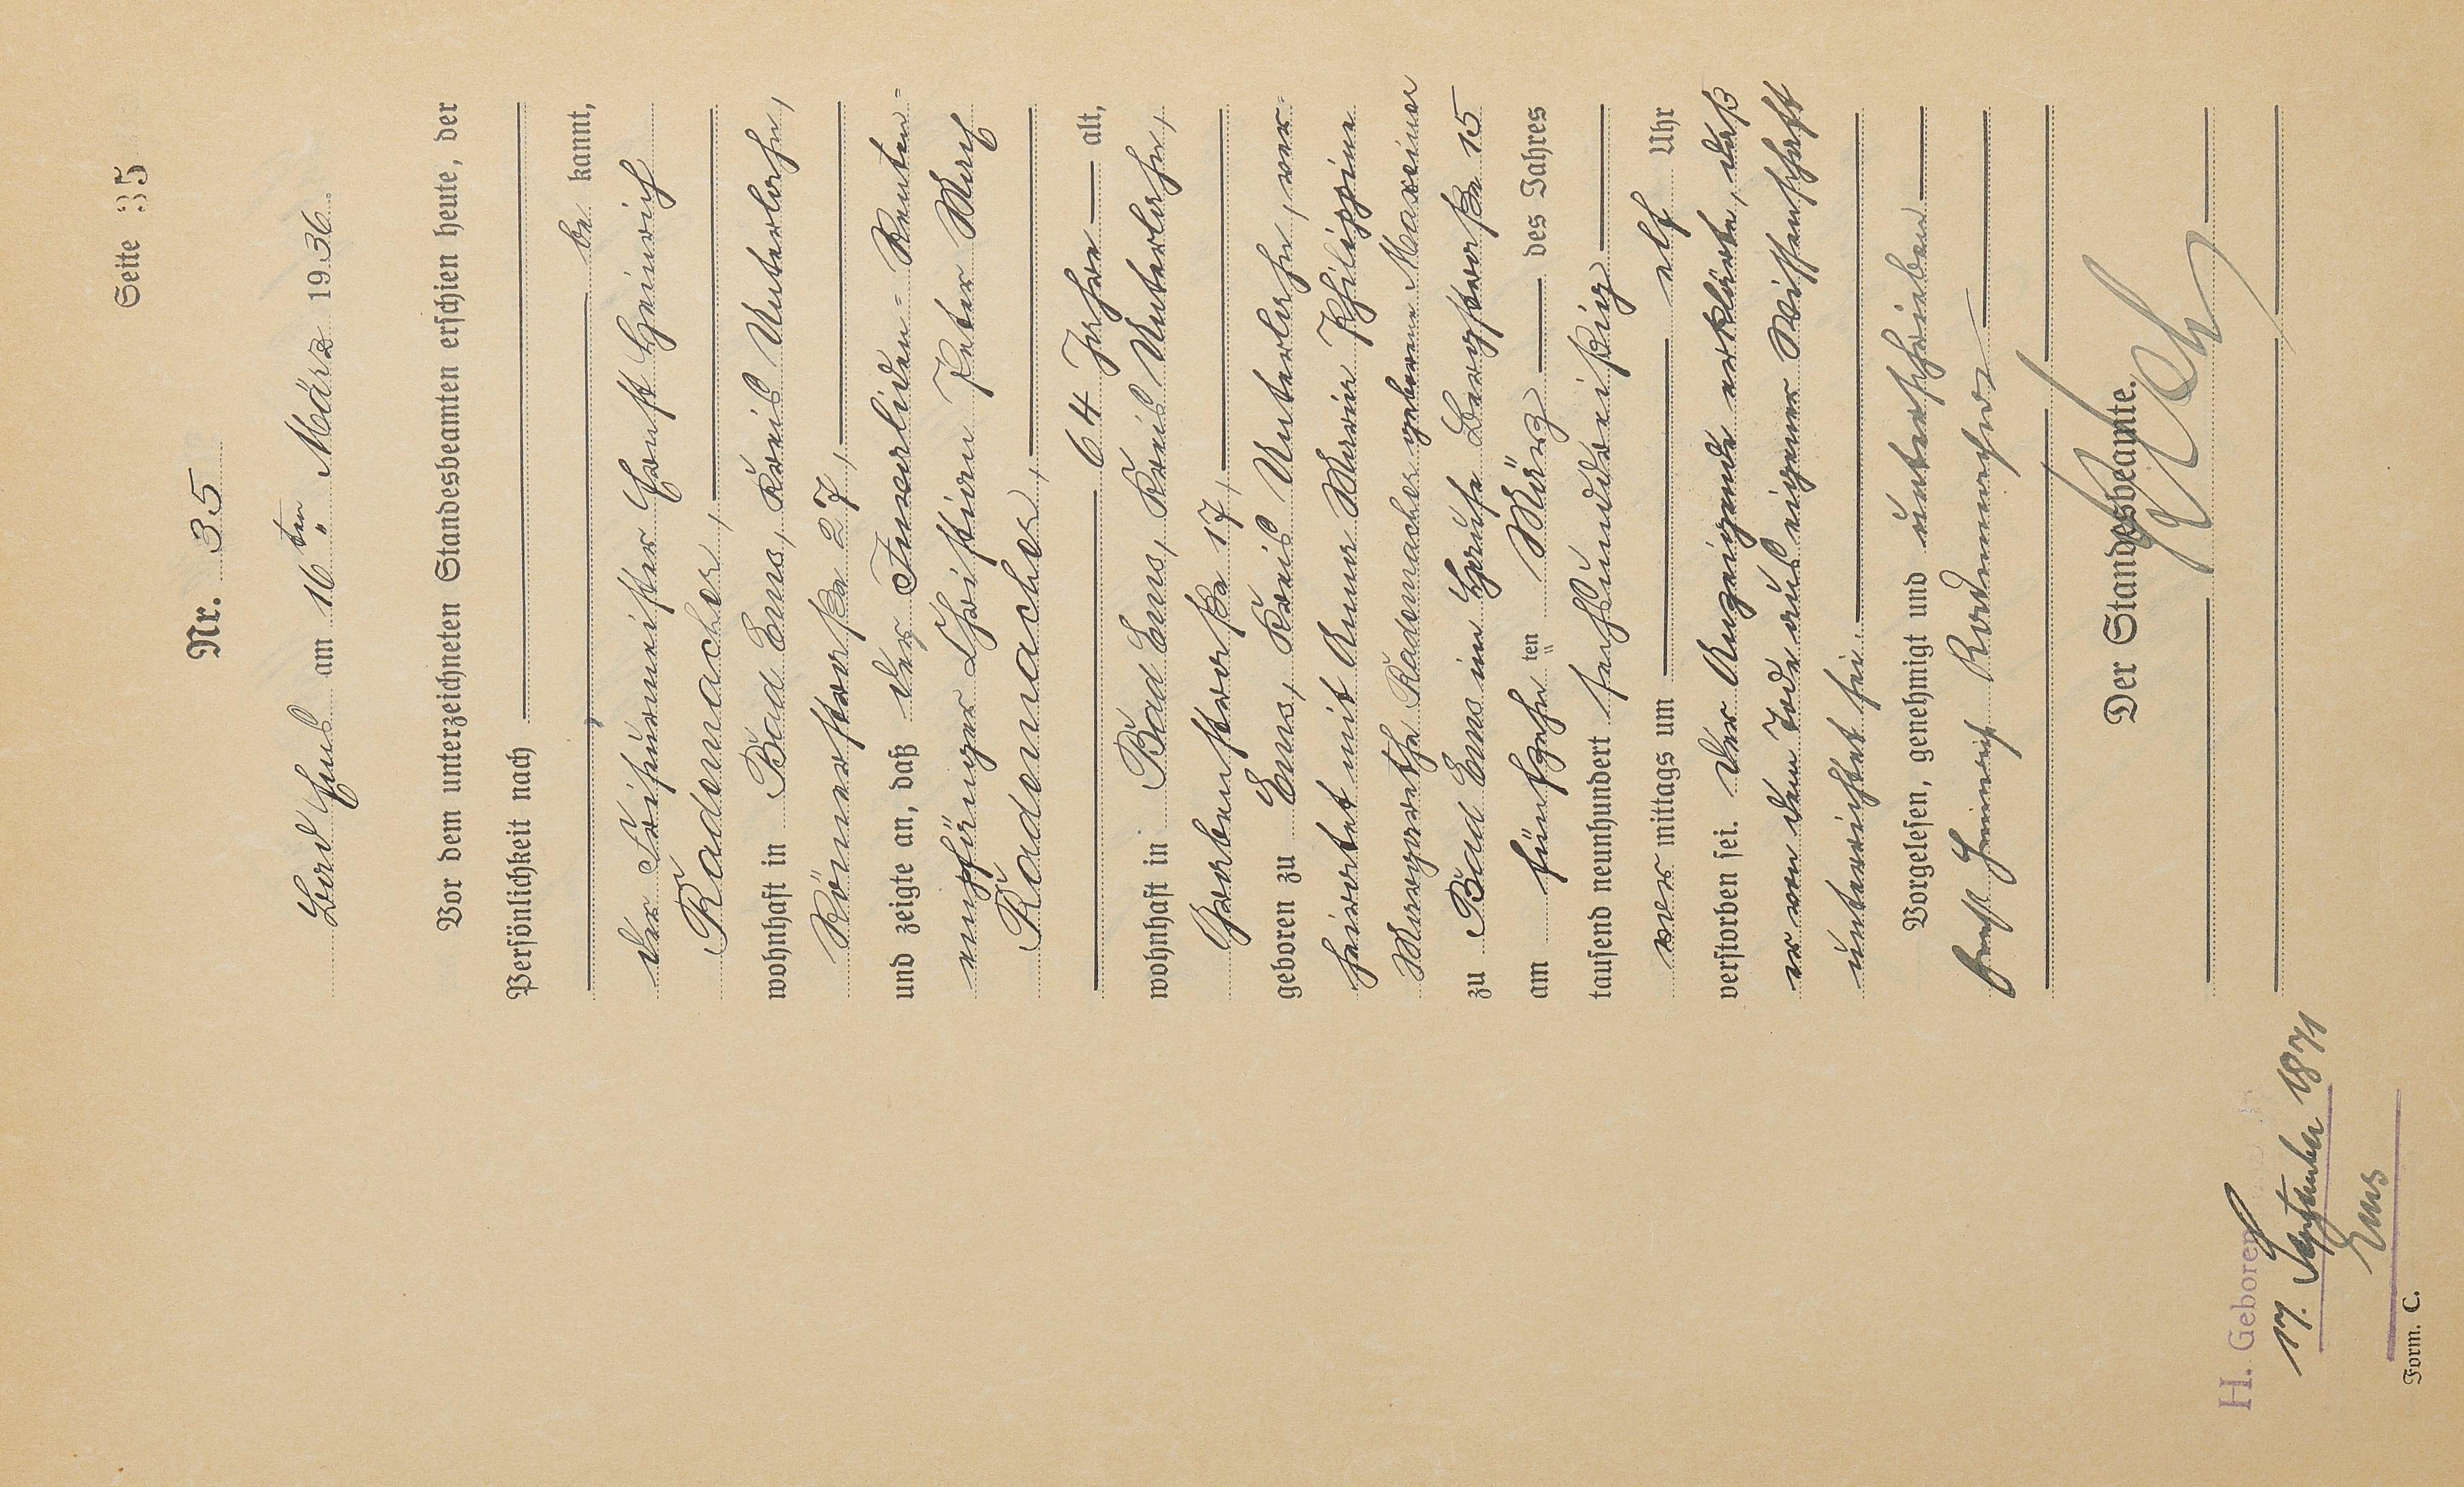 Seite 35
Nr. 35
Bad Ems am 16 ten März 1936.
Vor dem unterzeichneten Standesbeamten erschien heute, der
Persönlichkeit nach
be kannt,
der Friseurmeister Ernst Heinrich
Rademacher,
wohnhaft in Bad Ems, Kreis Unterlahn,
Römerstraße 27,
und zeigte an, daß der Invaliden- Renten-
empfänger Christian Peter Karl
Rademacher,
64 Jahre alt,
wohnhaft in Bad Ems, Kreis Unterlahn,
Grabenstraße 17,
geboren zu Ems, Kreis Unterlahn, ver-
heiratet mit Anna Maria Philippine
Margarethe Rademacher geborene Maxeiner
zu Bad Ems im Hause Bergstraße 15
am fünfzehn ten März des Jahres
tausend neunhundert sechsunddreißig
vor mittags um elf Uhr
verstorben sei. Der Anzeigende erklärte, daß
er von dem Tode aus eigener Wissenschaft
unterrichtet sei.
Vorgelesen, genehmigt und unterschrieben
Ernst Heinrich Rademacher
Der Standesbeamte.
H. Geboren
17. September 1871
Ems
Form. C.